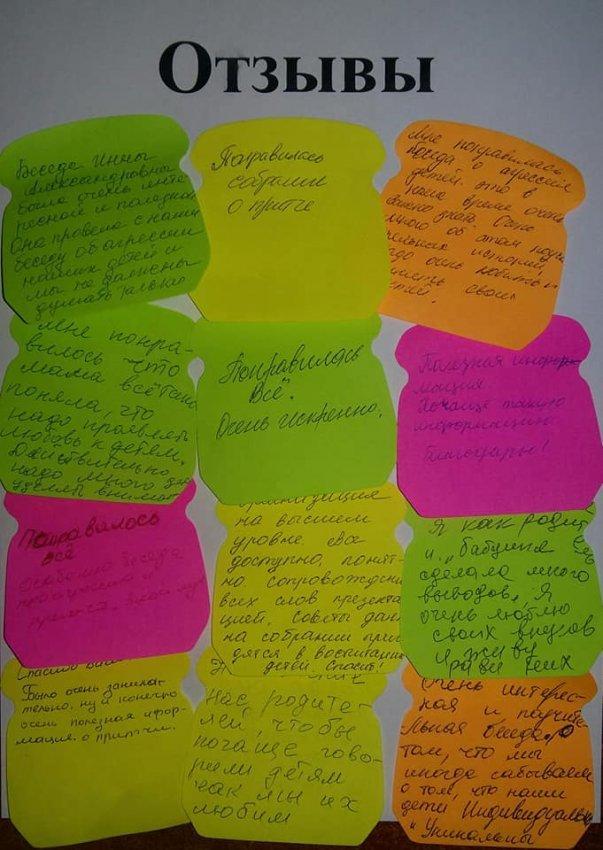 Отзывы
Беседа Инны
Александровны
была очень инте
ресной и полезной
Она провела с нами
беседу об агрессии
наших детей и
мы не должны
думать
Понравилось
собрание
о притче
Мне понравилась
беседа о агрессии
детей. это в
наше время очень
знать Очень
много об этом
истории,
очень любить и
своих
детей.
Мне понра-
вилось что
мама всётаки
поняла, что
надо проявлять
любовь к детям.
Действительно
надо много
уделять внимат
Понравилось
Всё.
Очень искренно.
Полезная инфор
мация
Почаще такую
информацию.
Благодары!
Понравилось
всё
Особенно беседа
организация
на высшем
уровне. Всё
доступно, понят-
но, сопровожден
всех слов презента
цией. Советы дан
на собрании приг
дятся в воспитании
детей. Спасиб!
Я как родит
и "бабушка"
сделала много
выводов. Я
очень люблю
своих внуков
и живу
ради них
Спасибо
Было очень занима-
тельно. ну и конечно
очень полезная ифор-
мация. о притчи.
Нас родите-
лей, чтобы
почаще гово-
рили детям
как мы их
любим
Очень интерес-
ная и поучите
льная беседа, о
том, что мы
иногда забываем
о том, что наши
дети Индивидуальн
и Уникальны